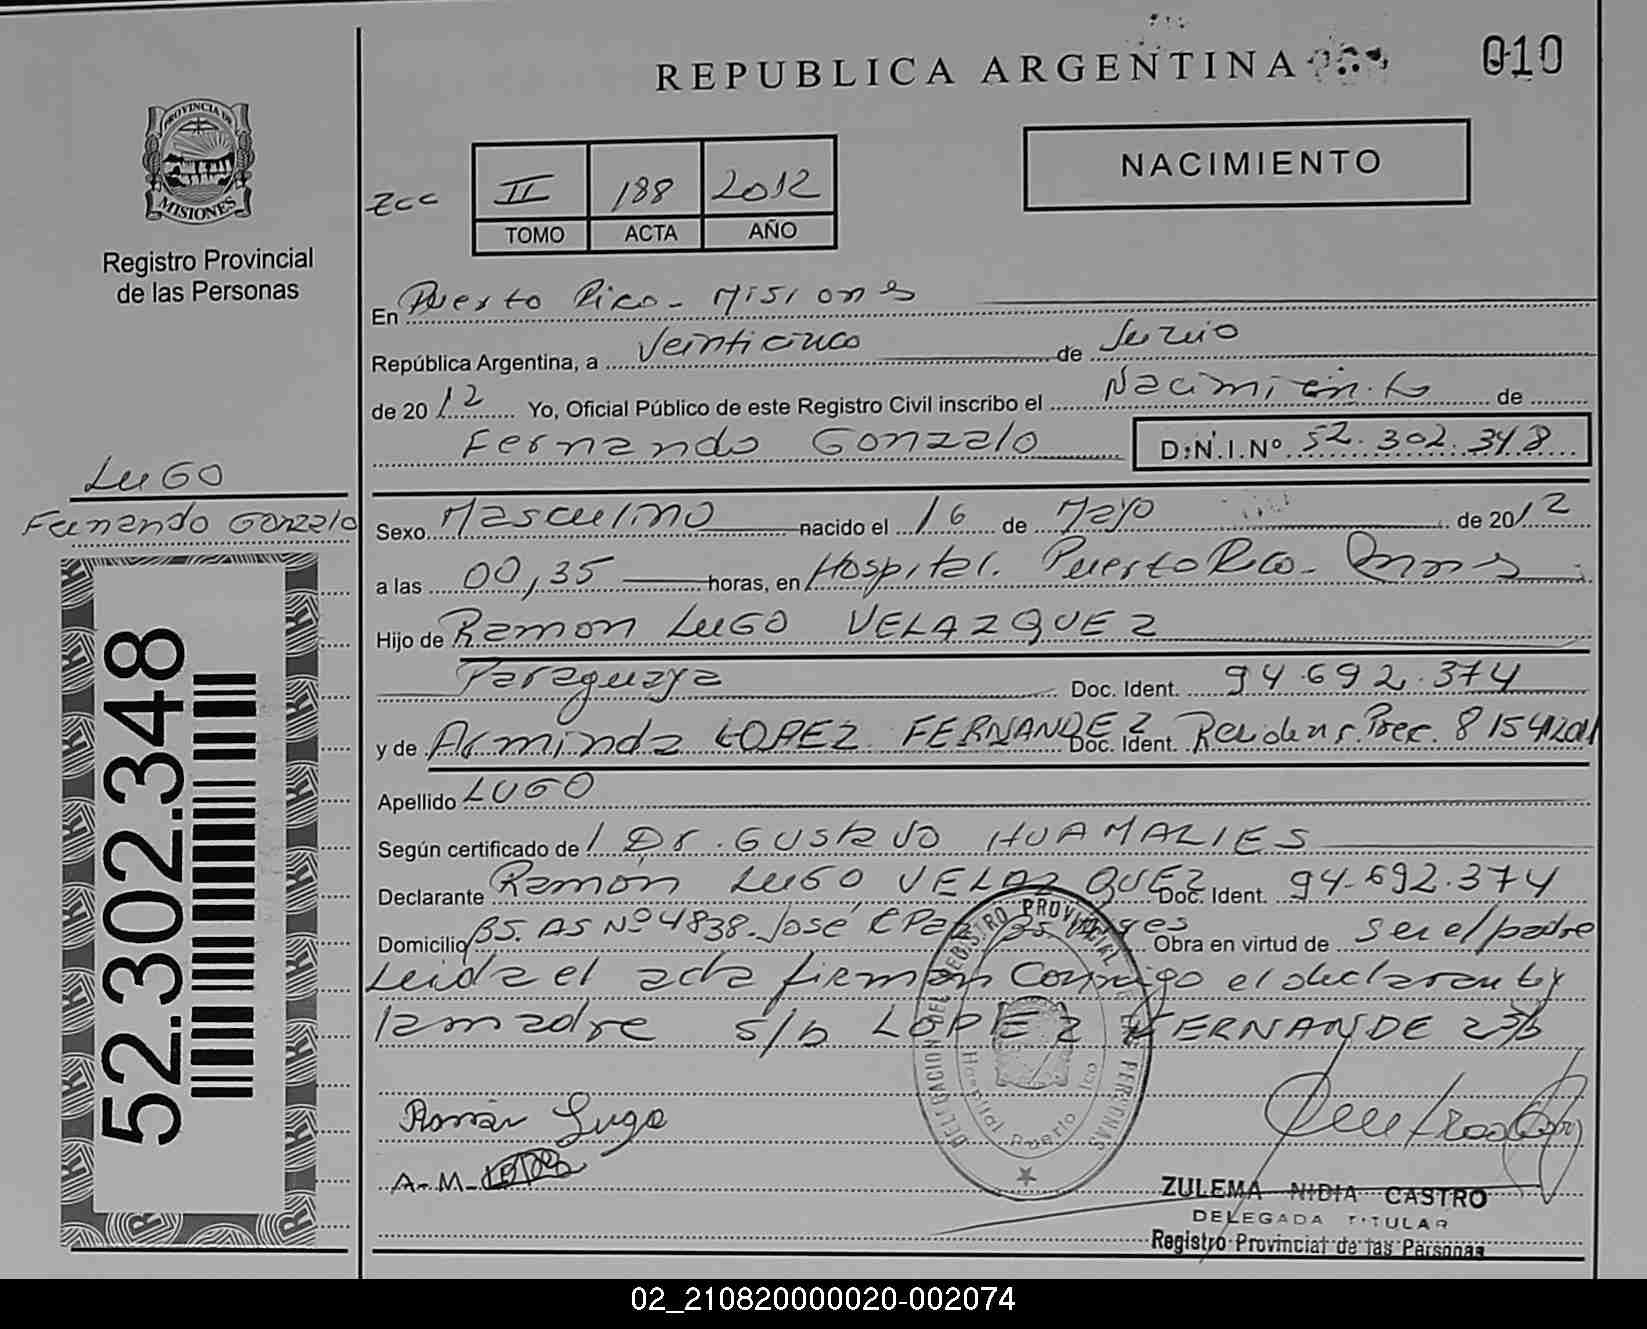 REPUBLICA ARGENTINA
010
PROVINCIA DE
MISIONES
Registro Provincial
de las Personas
NACIMIENTO
II 188 2012
TOMO ACTA AÑO
En Puerto Rico - Misiones
República Argentina, a Veinticinco de Junio
de 2012 Yo, Oficial Público de este Registro Civil inscribo el Nacimiento de
Fernando Gonzalo D.N.I.Nº 52.302.348
LUGO
Fernando Gonzalo
Sexo Masculino nacido el 16 de Mayo de 2012
a las 00,35 horas, en Hospital. Puerto Rico -
Hijo de Ramon LUGO VELAZQUEZ
Paraguaya Doc. Ident. 94.692.374
y de Arminda LOPEZ FERNANDEZ Doc. Ident.
Apellido LUGO
Según certificado de Dr. GUSTAVO HUAMALIES
Declarante Ramón LUGO VELAZQUEZ Doc. Ident. 94.692.374
Domicilio BS. AS Nº 4838. José C Paz Obra en virtud de ser el padre
Leida el acta firman conmigo el declarante y
la madre s/b LOPEZ FERNANDEZ
DELEGACION DEL REGISTRO PROVINCIAL DE LAS PERSONAS
Hospital Puerto Rico
Ramón Lugo
A-M-
ZULEMA NIDIA CASTRO
DELEGADA TITULAR
Registro Provincial de las Personas
52.302.348
02_210820000020-002074